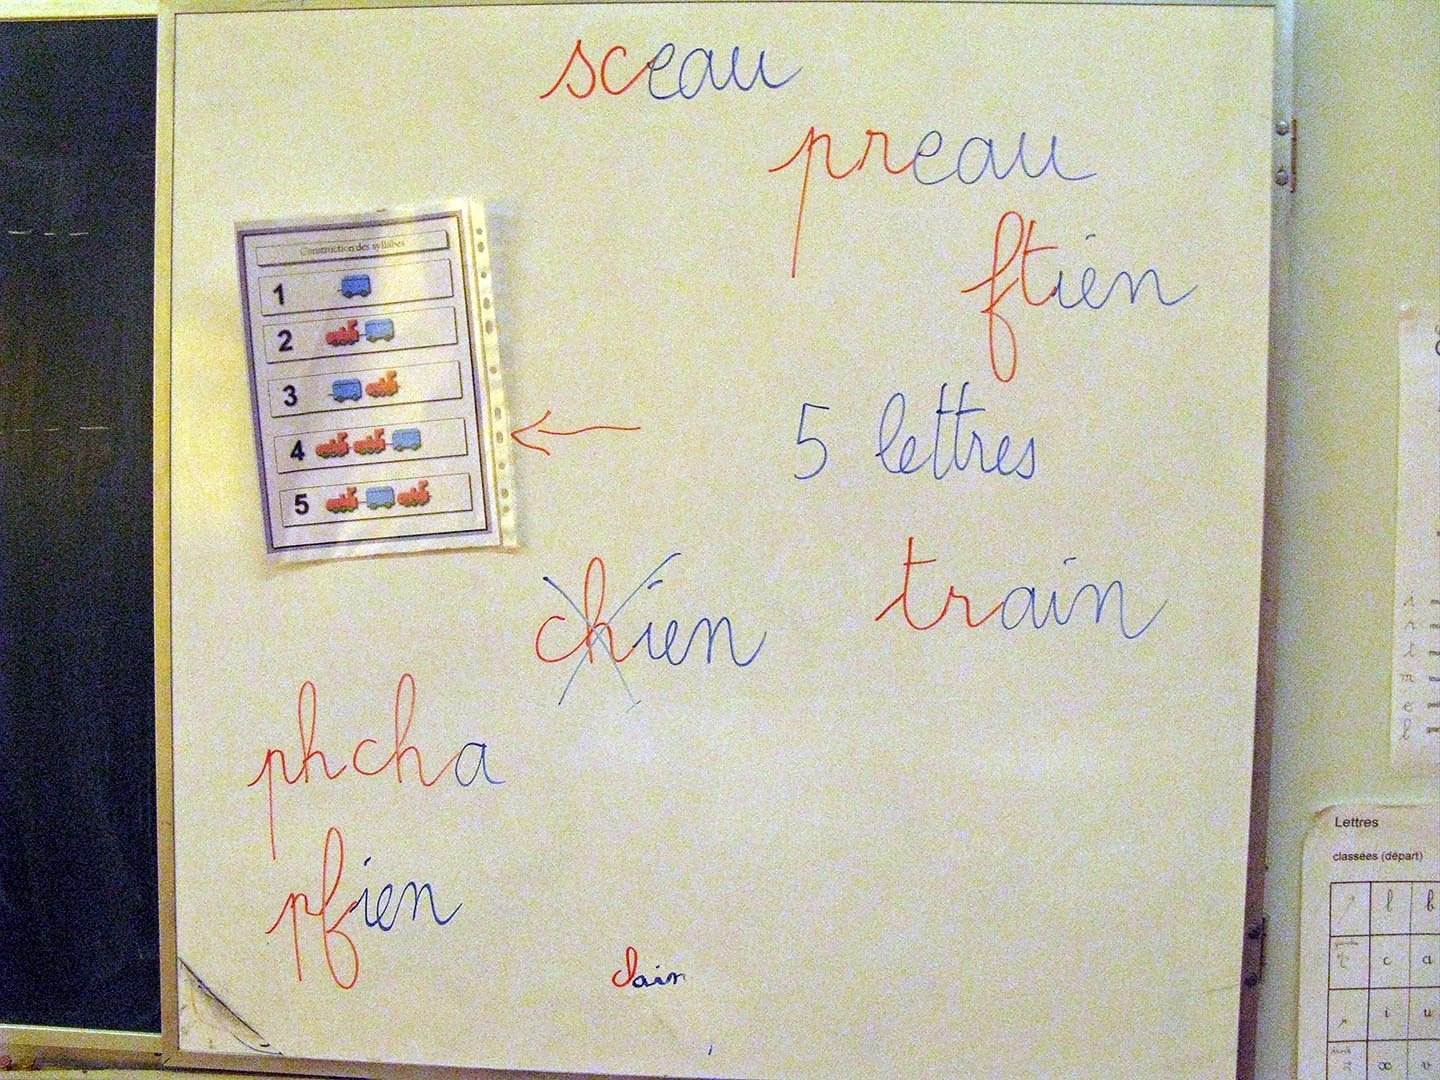 sceau
preau
ftien
Construction des syllabes
1
2
3
4
5
5 lettres
chien
train
phcha
pfien
clain
Lettres
classées (départ)
l b
c a
i u
x v